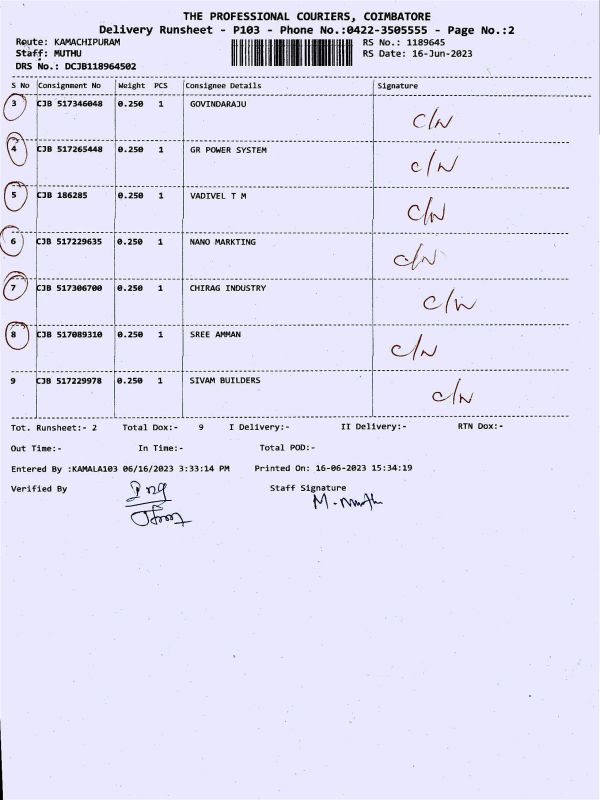 THE PROFESSIONAL COURIERS, COIMBATORE
Delivery Runsheet - P103 - Phone No.:0422-3505555 - Page No.:2
Route: KAMACHIPURAM RS No.: 1189645
Staff: MUTHU RS Date: 16-Jun-2023
DRS No.: DCJB118964502
S No Consignment No Weight PCS Consignee Details Signature
3 CJB 517346048 0.250 1 GOVINDARAJU C/N
4 CJB 517265448 0.250 1 GR POWER SYSTEM C/N
5 CJB 186285 0.250 1 VADIVEL T M C/N
6 CJB 517229635 0.250 1 NANO MARKTING C/N
7 CJB 517306700 0.250 1 CHIRAG INDUSTRY C/N
8 CJB 517089310 0.250 1 SREE AMMAN C/N
9 CJB 517229978 0.250 1 SIVAM BUILDERS C/N
Tot. Runsheet:- 2 Total Dox:- 9 I Delivery:- II Delivery:- RTN Dox:-
Out Time:- In Time:- Total POD:-
Entered By :KAMALA103 06/16/2023 3:33:14 PM Printed On: 16-06-2023 15:34:19
Verified By Staff Signature
M. Muthu